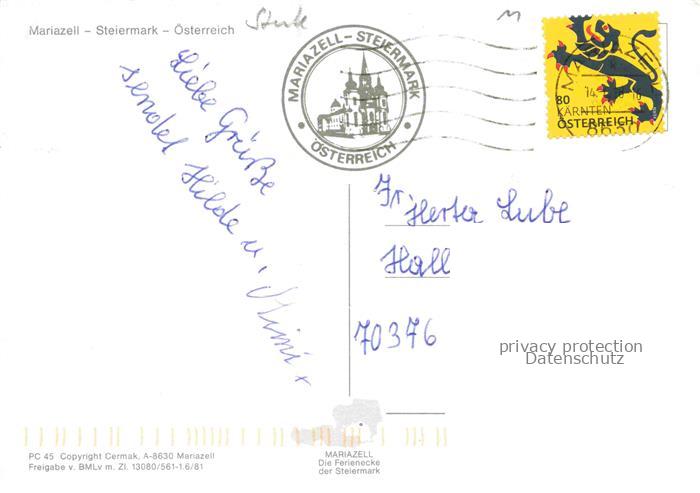 Mariazell – Steiermark – Österreich
MARIAZELL – STEIERMARK
ÖSTERREICH
80
KÄRNTEN
ÖSTERREICH
8630
Liebe Grüße
sendet Hilde u. Mimi
Fr. Herta Lube
Hall
70376
privacy protection
Datenschutz
PC 45 Copyright Cermak, A-8630 Mariazell
Freigabe v. BMLv m. Zl. 13080/561-1.6/81
MARIAZELL
Die Ferienecke
der Steiermark